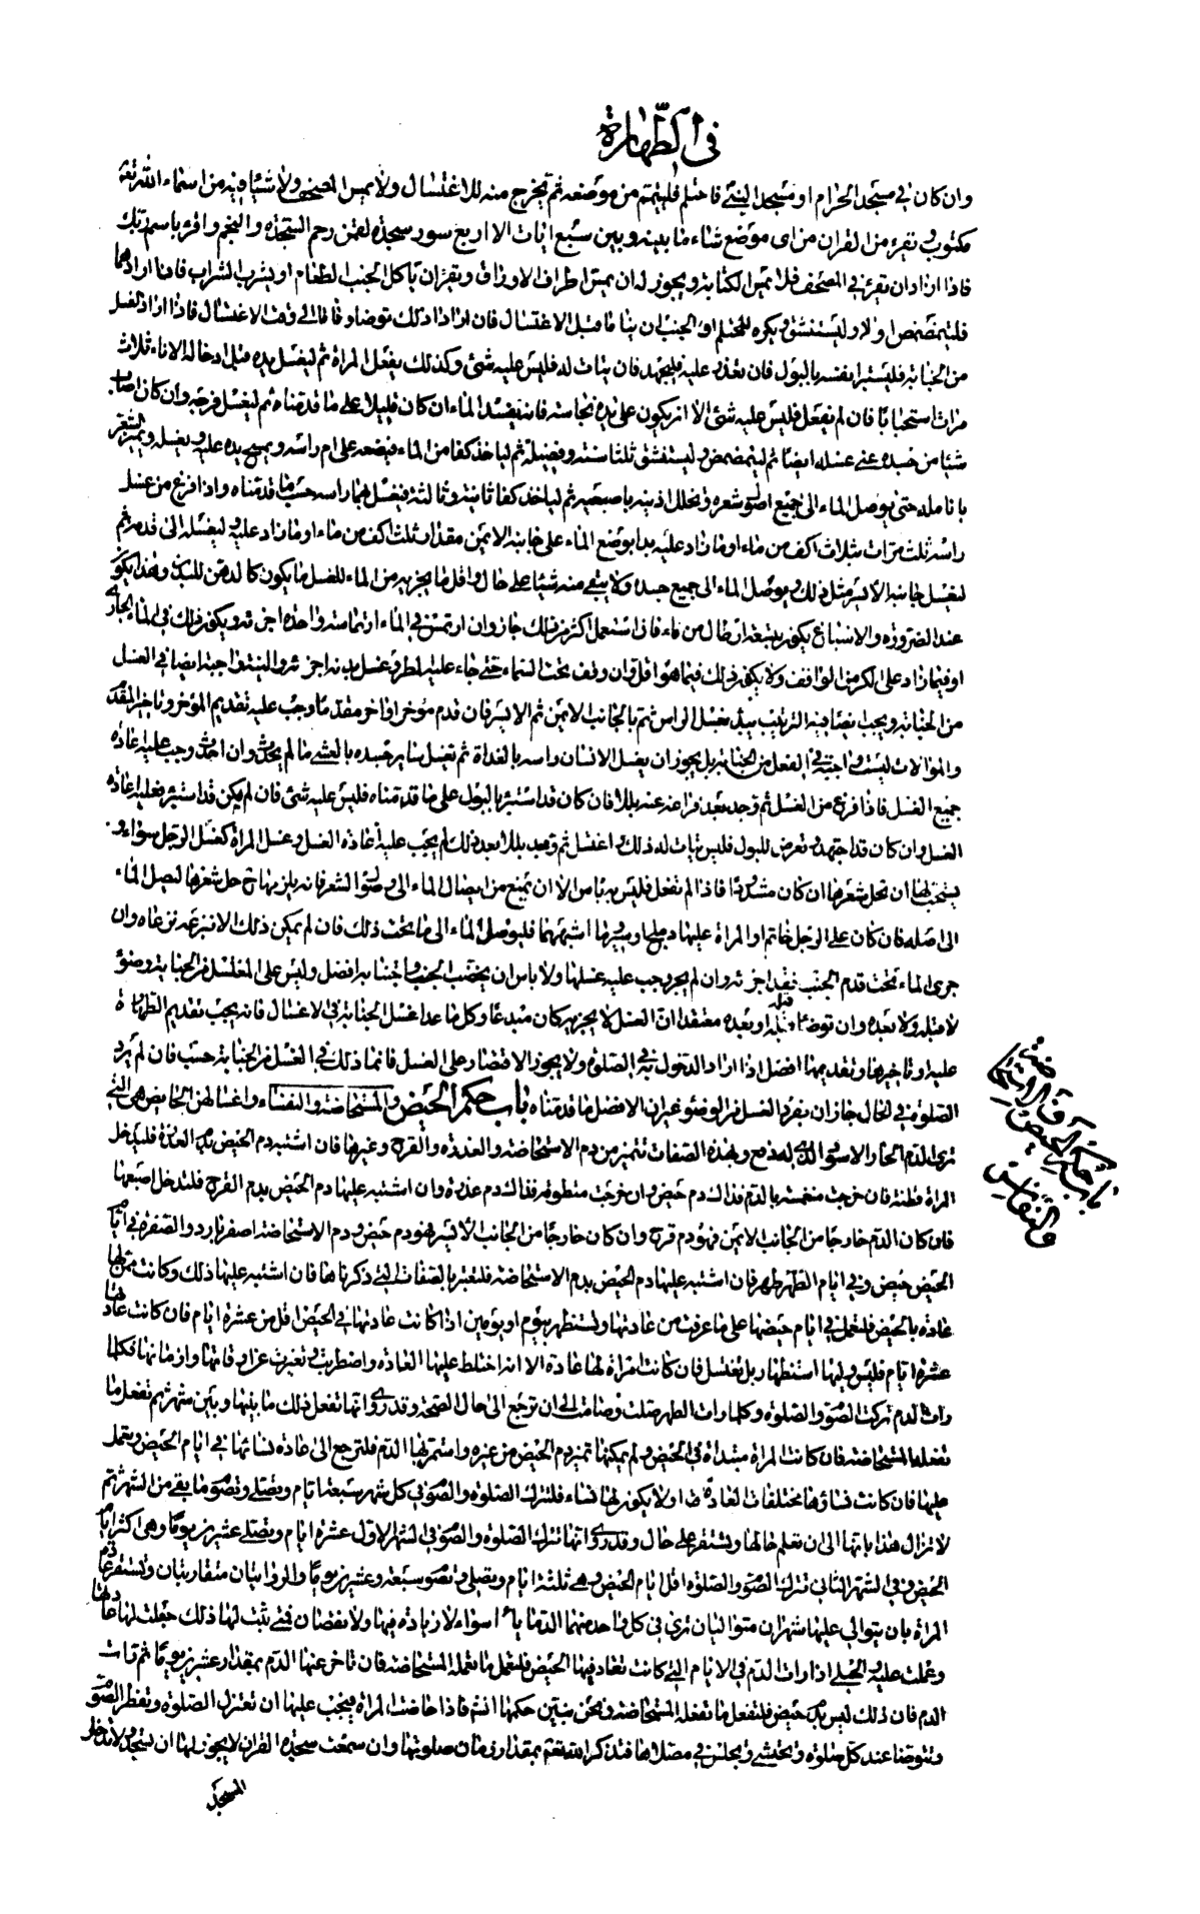 في الطهارة
وان كان في مسجد الحرام او مسجد النبي فاحتلم فليتيمم من موضعه ثم يخرج منه للاغتسال ولا يمس المصحف ولا شيئا فيه من اسماء الله تعه
مكتوب و يقرء من القران من اى موضع شاء ما بينه و بين سبع ايات الا اربع سور سجدة لقمن وحم السجدة والنجم واقرء باسم ربك
فاذا اراد ان يقرء في المصحف فلا يمس الكتابة و يجوز له ان يمس اطراف الاوراق و يكره ان ياكل الجنب الطعام او يشرب الشراب فان ارادهما
فليتمضمض اولا وليستنشق و يكره للمحتلم او الجنب ان يناما قبل الاغتسال فان ارادا ذلك توضاء وناما الى وقت الاغتسال فاذا اراد الغسل
من الجنابة فليستبرا نفسه بالبول فان تعذر عليه فليجهد فان يتات له فليس عليه شئ وكذلك يفعل المراة ثم ليغسل يده قبل ادخاله الاناء ثلاث
مرات استحبابا فان لم يفعل فليس عليه شئ الا ان يكون على يده نجاسة فانه يفسد الماء ان كان قليلا على ما قدمناه ثم ليغسل فرجه وان كان اصاب
شيئا من جسده منى غسله ايضا ثم ليتمضمض و ليستنشق ثلثا سنة وفضيلة ثم لياخذ كفا من الماء فيضعه على ام راسه ويمسح يده عليه و يغسله ويميز الشعر
بانامله حتى يوصل الماء الى جميع اصول شعره و يخلل اذنيه باصبعيه ثم لياخذ كفا ثانية و ثالثة فيغسل بهما راسه حسب ما قدمناه واذا فرغ من غسل
راسه ثلث مرات بثلاث اكف من ماء او ما زاد عليه بدا بوضع الماء على جانبه الايمن مقدار ثلث اكف من ماء او ما زاد عليه و ليغسله الى قدمه ثم
ليغسل جانبه الايسر مثل ذلك و يوصل الماء الى جميع جسده ولا يبقى منه شيئا على حال واقل ما يجزيه من الماء للغسل ما يكون كالدهن للبدن وهذا يكون
عند الضرورة والاسباغ يكون بتسعة ارطال من ماء فان استعمل اكثر من ذلك جاز وان ارتمس في الماء ارتماسة واحدة اجزءه ويكون ذلك في الماء الجارى
او فيما زاد على الكر من الواقف ولا يكون ذلك فيما هو اقل وان وقف تحت السماء حتى جاء عليه المطر و غسل بدنه اجزءه والنية واجبة ايضا في الغسل
من الجنابة و يجب ايضا فيه الترتيب يبدء بغسل الراس ثم بالجانب الايمن ثم الايسر فان قدم موخرا او اخر مقدما وجب عليه تقديم المؤخر و تاخير المقدم
والموالات ليست واجبة في الفعل من الجنابة بل يجوز ان يغسل الانسان راسه بالغداة ثم يغسل ساير جسده بالعشي ما لم يحدث وان احدث وجب عليه اعادة
جميع الغسل فاذا فرغ من الغسل ثم وجد بعد فراغه عنه بللا فان كان قد استبرء بالبول على ما قدمناه فليس عليه شئ فان لم يكن قد استبرء فعليه اعادة
الغسل وان كان قد اجتهد و تعرض للبول فليس يتات له ذلك و اغتسل ثم وجد بللا بعد ذلك لم يجب عليه اعادة الغسل و غسل المراة كغسل الرجل سواء و
يستحب لها ان تحل شعرها ان كان مشدودا فاذا لم تفعل فليس به باس الا ان يمنع من ايصال الماء الى اصول الشعر فانه يلزمها ح حل شعرها ليصل الماء
الى اصله فان كان على الرجل خاتم او المراة عليها دملج او سير وما اشبههما فليوصل الماء الى ما تحت ذلك فان لم يمكن ذلك الا بنزعه نزعاه وان
جرى الماء تحت قدم الجنب فقد اجزءه وان لم يجر وجب عليه غسلها ولا باس ان يختضب الجنب و اجتنابه افضل وليس على المغتسل من الجنابة وضوء
لا قبله ولا بعده وان توضاء قبله او بعده معتقدا ان الغسل لا يجزيه كان مبدعا وكل ما عدا غسل الجنابة في الاغسال فانه يجب تقديم الطهارة
عليه او تاخيرها و تقديمها افضل اذا اراد الدخول به في الصلوة ولا يجوز الاقتصار على الغسل فانما ذلك في الغسل من الجنابة حسب فان لم يرد
الصلوة في الحال جاز ان يفرد الغسل من الوضوء غير ان الافضل ما قدمناه باب حكم الحيض والمستحاضة والنفساء واغسالهن الحايض هي التي
ترى الدم الحار الاسود الذى له دفع و بهذه الصفات تتميز من دم الاستحاضة والعذرة والقرح وغيرها فان اشتبه دم الحيض بدم العذرة فليدخل
المراة قطنة فان خرجت منغمسة بالدم فذلك دم حيض وان خرجت متطوقة فذلك دم عذرة وان اشتبه عليها دم الحيض بدم القرح فلتدخل اصبعها
فان كان الدم خارجا من الجانب الايمن فهو دم قرح وان كان خارجا من الجانب الايسر فهو دم حيض و دم الاستحاضة اصفر بارد والصفرة في ايام
الحيض حيض و في ايام الطهر طهر فان اشتبه عليها دم الحيض بدم الاستحاضة فلتعتبر بالصفات التي ذكرناها فان اشتبه عليها ذلك وكانت ممن لها
عادة بالحيض فلتعمل في ايام حيضها على ما عرفت من عادتها و لتستظهر بيوم او يومين اذا كانت عادتها في الحيض اقل من عشرة ايام فان كانت عادتها
عشرة ايام فليس عليها استظهار بل تغتسل فان كانت امراة لها عادة الا انه اختلط عليها العادة واضطربت و تغيرت عن اوقاتها وازمانها فكلما
رات الدم تركت الصوم والصلوة و كلما رات الطهر صلت وصامت الى ان ترجع الى حال الصحة وقد روى انها تفعل ذلك ما بينها و بين شهر ثم تفعل ما
تفعله المستحاضة فان كانت المراة مبتداة في الحيض و لم يمكنها تميز دم الحيض من غيره واستمر بها الدم فلترجع الى عادة نسائها في ايام الحيض و يعمل
عليها فان كانت نساؤها مختلفات العادة او لا يكون لها نساء فلتترك الصلوة والصوم في كل شهر سبعة ايام و تصلي و تصوم ما بقي من الشهر ثم
لا تزال هذا دابها الى ان تعلم حالها و تستقر على حال وقد روى انها تترك الصلوة والصوم في الشهر الاول عشرة ايام و تصلي عشرين يوما وهي اكثر ايام
الحيض و في الشهر الثاني تترك الصوم والصلوة اقل ايام الحيض و هي ثلثة ايام و تصلي و تصوم سبعة و عشرين يوما والروايتان متقاربتان و تستقر عادة
المراة بان يتوالى عليها شهران متواليان ترى في كل واحد منهما الدم اياما سواء لا زيادة فيها ولا نقصان فمتى ثبت لها ذلك جعلت لها عادتها
وعملت عليه و الحبلى اذا رات الدم في الايام التي كانت تعتاد فيها الحيض فلتعمل ما تعمله المستحاضة فان تاخر عنها الدم بمقدار عشرين يوما ثم رات
الدم فان ذلك ليس بدم حيض فلتفعل ما تفعله المستحاضة و نحن نبين حكمها انشء فاذا حاضت المراة فيجب عليها ان تعتزل الصلوة و تفطر الصوم
و تتوضا عند كل صلوة و تحتشي و تجلس في مصلاها فتذكر الله تعه بمقدار زمان صلوتها وان سمعت سجدة القران لا يجوز لها ان تسجد و لا تدخل
المسجد
باب حكم الحيض والاستحاضة
والنفاس